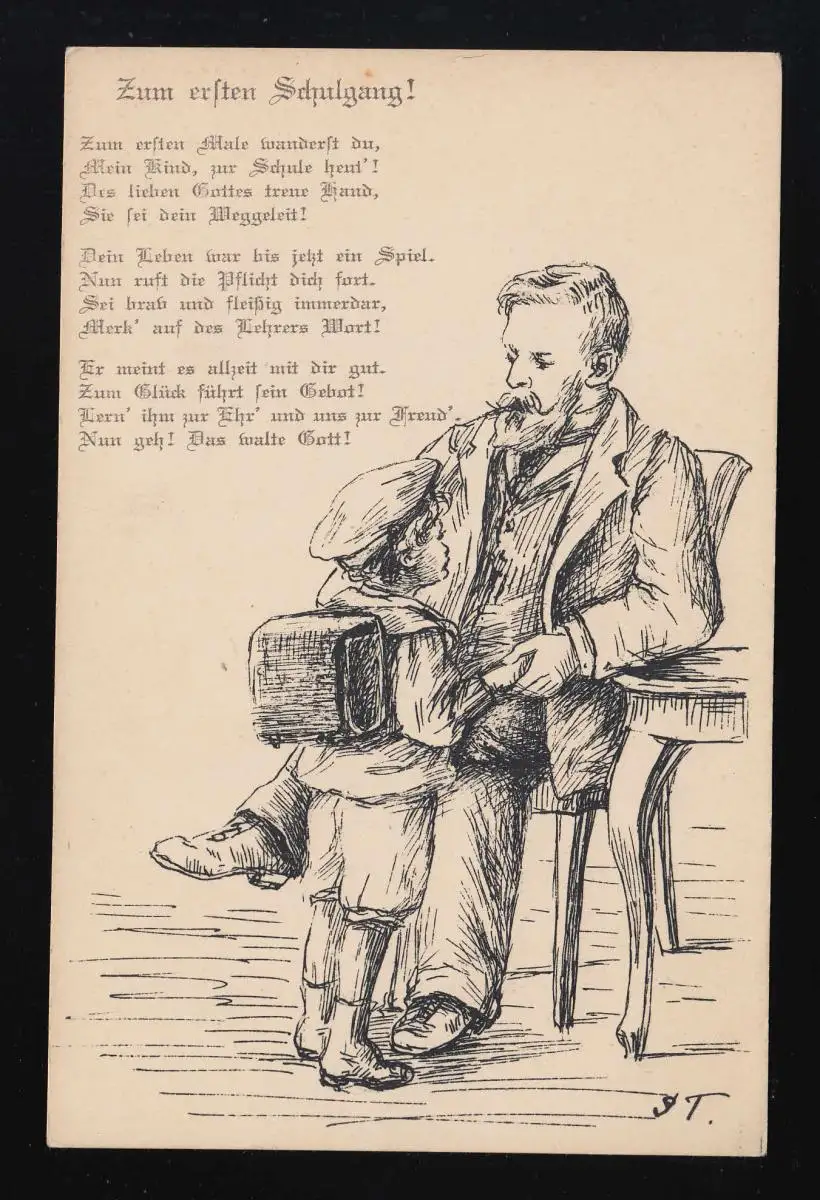 Zum ersten Schulgang!
Zum ersten Male wanderst du,
Mein Kind, zur Schule heut'!
Des lieben Gottes treue Hand,
Sie sei dein Weggeleit!
Dein Leben war bis jetzt ein Spiel.
Nun ruft die Pflicht dich fort.
Sei brav und fleißig immerdar,
Merk' auf des Lehrers Wort!
Er meint es allzeit mit dir gut.
Zum Glück führt sein Gebot!
Lern' ihm zur Ehr' und uns zur Freud'.
Nun geh! Das walte Gott!